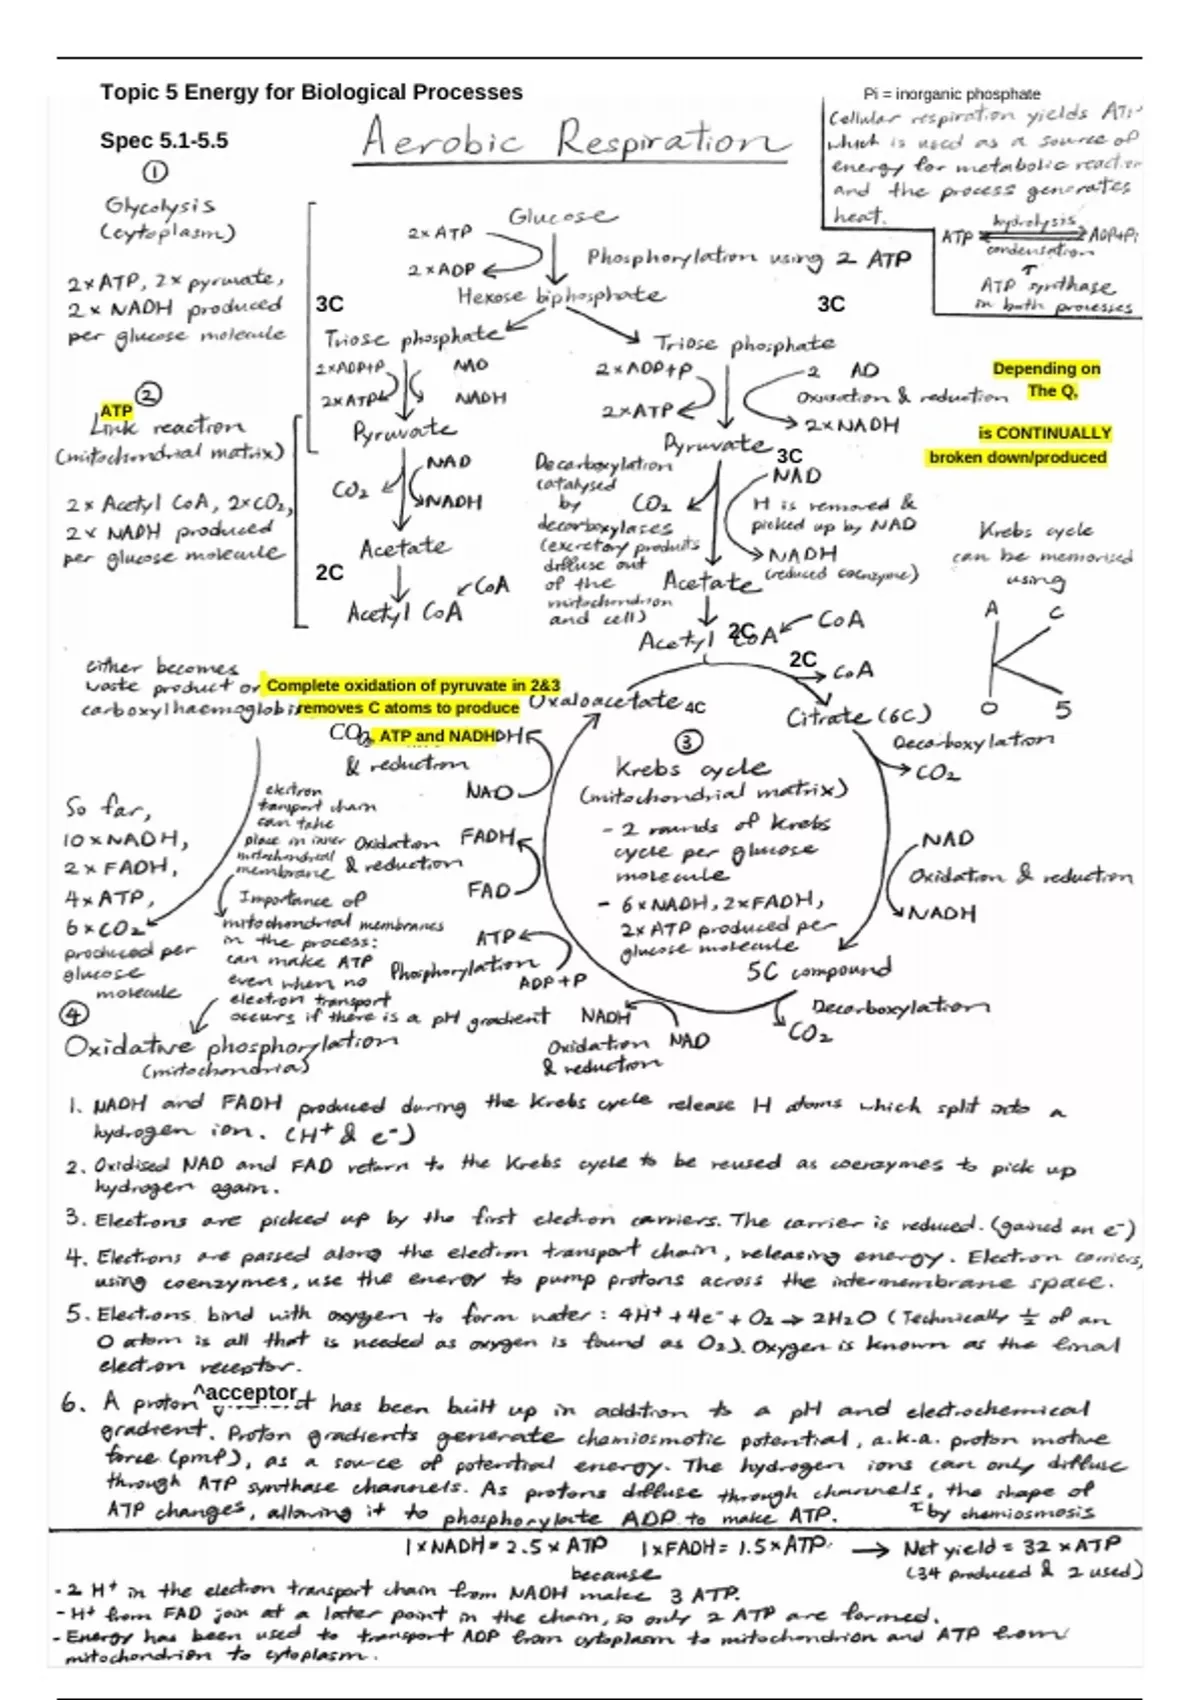 Topic 5 Energy for Biological Processes
Pi = inorganic phosphate
Spec 5.1-5.5
Aerobic Respiration
Cellular respiration yields ATP
which is used as a source of
energy for metabolic reaction
and the process generates
heat.
ATP hydrolysis ADP+Pi
condensation
ATP synthase
in both processes
①
Glycolysis
(cytoplasm)
2xATP, 2x pyruvate,
2 x NADH produced
per glucose molecule
Glucose
2x ATP
2 x ADP
Phosphorylation using 2 ATP
Hexose biphosphate
3C
3C
Triose phosphate
Triose phosphate
2xADP+P
NAD
2xATP
NADH
2 x ADP+P
2 AD
Oxidation & reduction
2xATP
2xNADH
Depending on
The Q,
ATP
is CONTINUALLY
broken down/produced
②
Link reaction
(mitochondrial matrix)
2x Acetyl CoA, 2xCO2,
2x NADH produced
per glucose molecule
Pyruvate
Pyruvate
3C
CO2
NAD
NADH
Acetate
2C
CoA
Acetyl CoA
Decarboxylation
catalysed
by
decarboxylases
(excretory products
diffuse out
of the
mitochondrion
and cell)
CO2
NAD
H is removed &
picked up by NAD
NADH
(reduced coenzyme)
Acetate
2C
CoA
Acetyl CoA
2C
CoA
Krebs cycle
can be memorised
using
A C
K
O 5
either becomes
waste product or
carboxylhaemoglobin
Complete oxidation of pyruvate in 2&3
removes C atoms to produce
CO2, ATP and NADH
Oxaloacetate 4C
Citrate (6C)
Decarboxylation
CO2
& reduction
NAD
③
Krebs cycle
(mitochondrial matrix)
- 2 rounds of Krebs
cycle per glucose
molecule
- 6xNADH, 2xFADH,
2x ATP produced per
glucose molecule
NAD
Oxidation & reduction
NADH
5C compound
Decarboxylation
CO2
So far,
10xNADH,
2x FADH,
4xATP,
6xCO2
produced per
glucose
molecule
electron
transport chain
can take
place in inner
mitochondrial
membrane
Oxidation
& reduction
FADH
FAD
Importance of
mitochondrial membranes
in the process:
can make ATP
even when no
electron transport
occurs if there is a pH gradient
ATP
Phosphorylation
ADP+P
NADH
Oxidation
& reduction
NAD
④
Oxidative phosphorylation
(mitochondria)
1. NADH and FADH produced during the Krebs cycle release H atoms which split into a
hydrogen ion. (H+ & e-)
2. Oxidised NAD and FAD return to the Krebs cycle to be reused as coenzymes to pick up
hydrogen again.
3. Electrons are picked up by the first electron carriers. The carrier is reduced. (gained an e-)
4. Electrons are passed along the electron transport chain, releasing energy. Electron carriers,
using coenzymes, use the energy to pump protons across the intermembrane space.
5. Electrons bind with oxygen to form water: 4H+ + 4e- + O2 → 2H2O (Technically ½ of an
O atom is all that is needed as oxygen is found as O2). Oxygen is known as the final
electron receptor.
^acceptor
6. A proton gradient has been built up in addition to a pH and electrochemical
gradient. Proton gradients generate chemiosmotic potential, a.k.a. proton motive
force (pmf), as a source of potential energy. The hydrogen ions can only diffuse
through ATP synthase channels. As protons diffuse through channels, the shape of
ATP changes, allowing it to phosphorylate ADP to make ATP.
by chemiosmosis
1xNADH = 2.5 x ATP 1xFADH = 1.5xATP. → Net yield = 32 xATP
because
(34 produced & 2 used)
- 2 H+ in the electron transport chain from NADH make 3 ATP.
- H+ from FAD join at a later point in the chain, so only 2 ATP are formed.
- Energy has been used to transport ADP from cytoplasm to mitochondrion and ATP from
mitochondrion to cytoplasm.